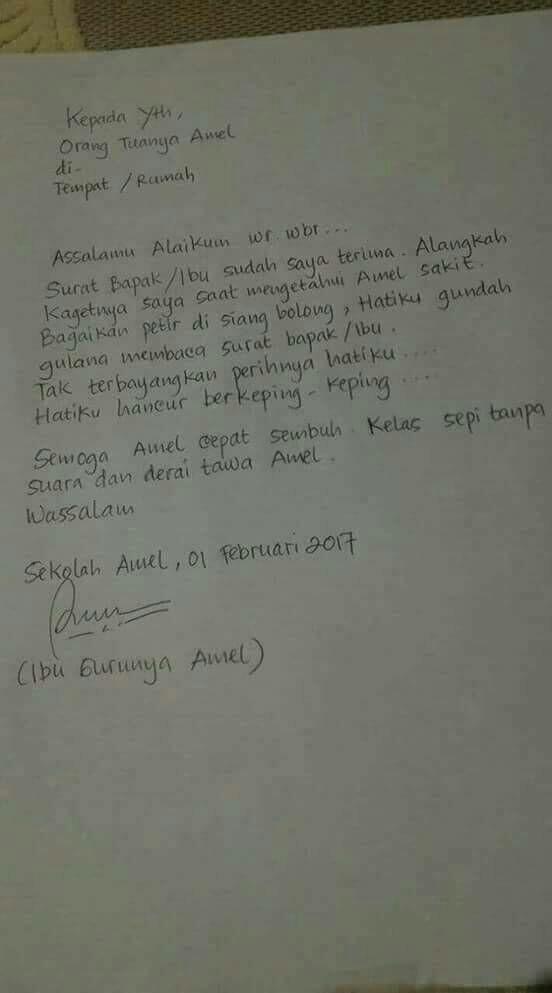 Kepada Yth,
Orang Tuanya Amel
di-
Tempat / Rumah
Assalamu Alaikum wr. wbr...
Surat Bapak/Ibu sudah saya terima. Alangkah
Kagetnya saya saat mengetahui Amel sakit.
Bagaikan petir di siang bolong, Hatiku gundah
gulana membaca surat bapak/ibu.
Tak terbayangkan perihnya hatiku....
Hatiku hancur berkeping-keping....
Semoga Amel cepat sembuh. Kelas sepi tanpa
suara dan derai tawa Amel.
Wassalam
Sekolah Amel, 01 Februari 2017
(Ibu Gurunya Amel)